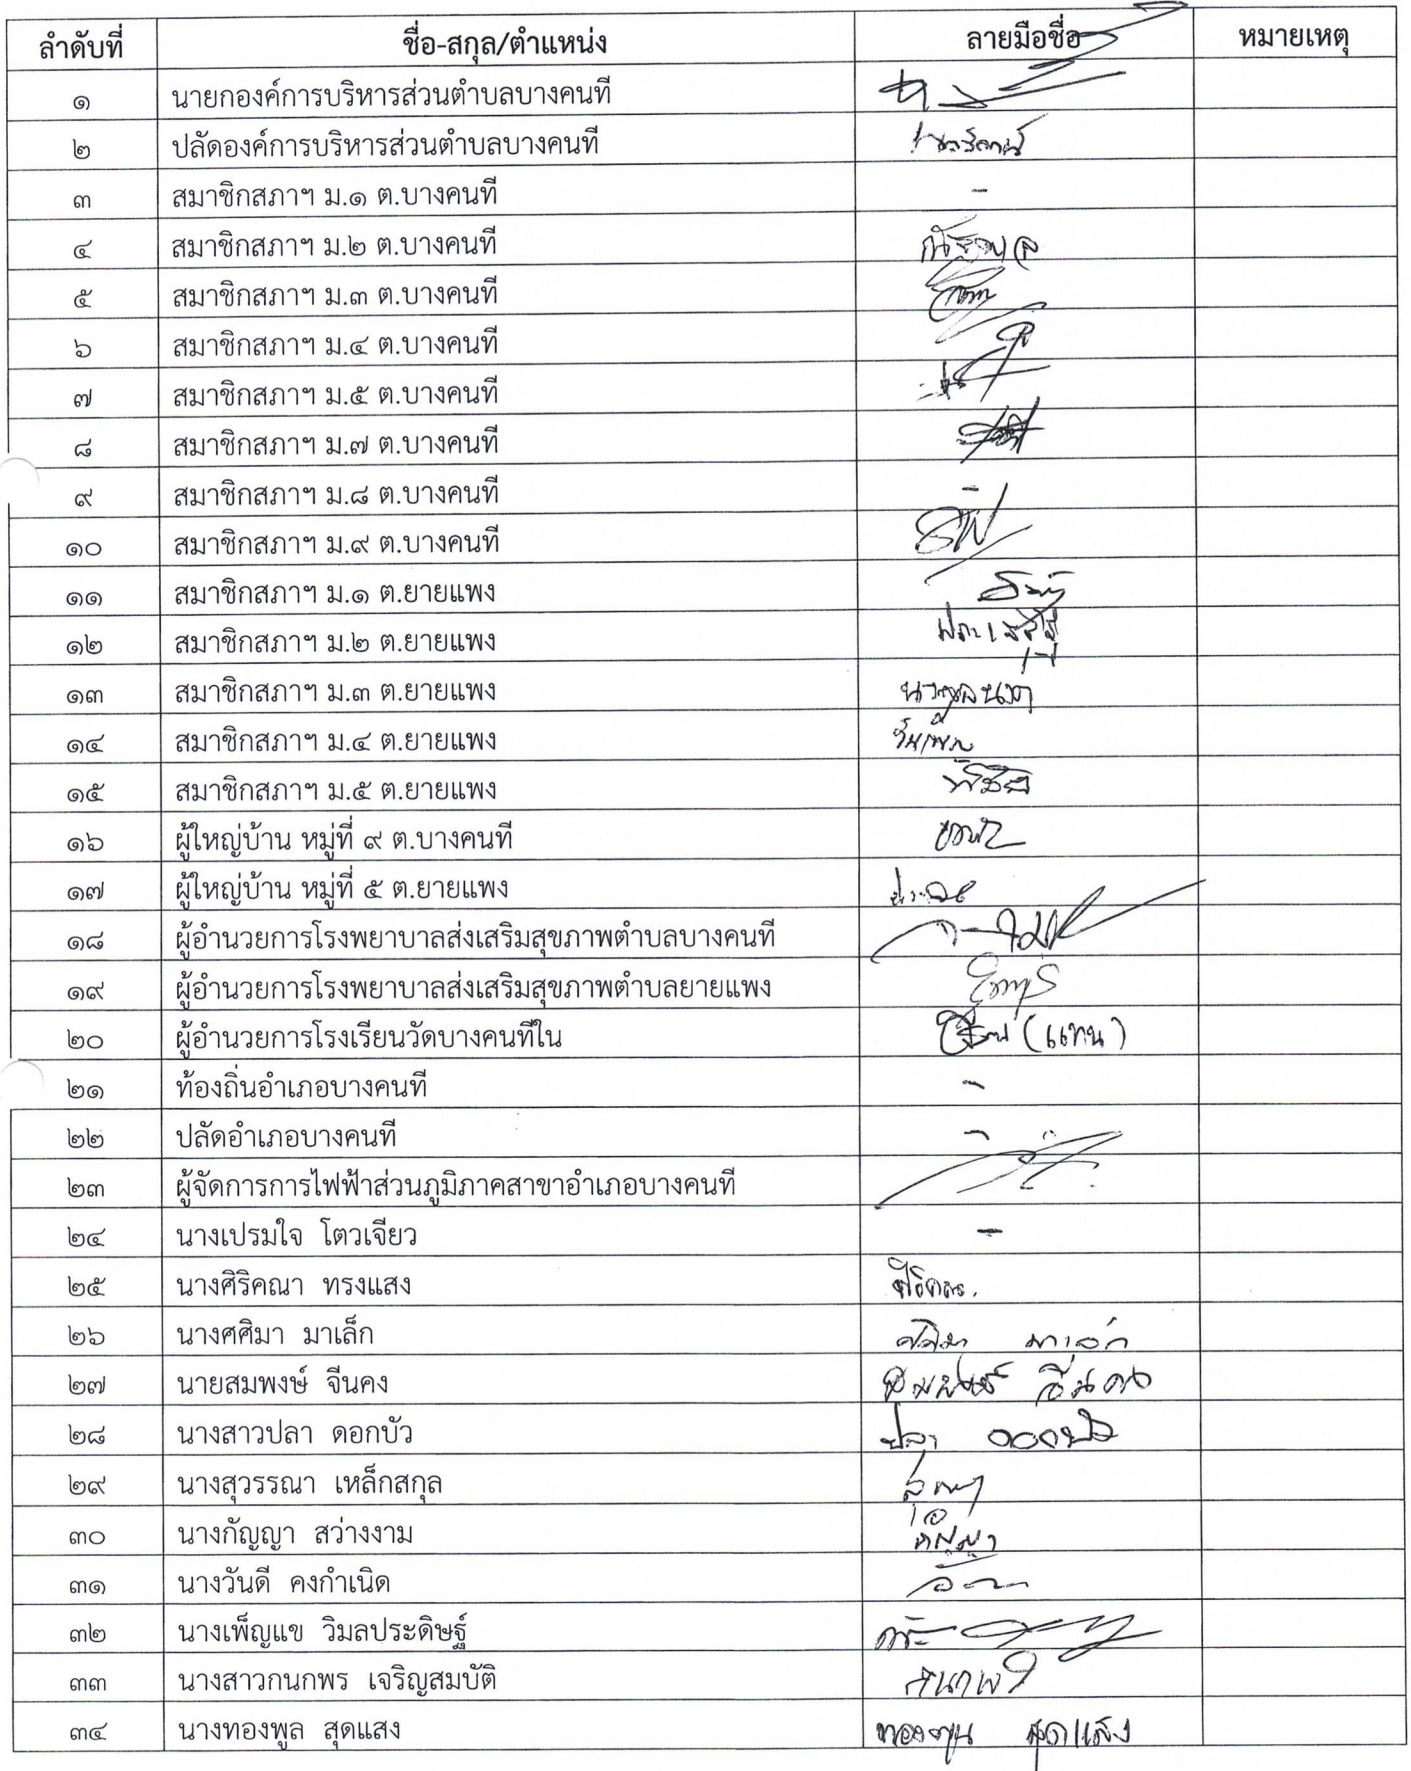 ลำดับที่ ชื่อ-สกุล/ตำแหน่ง ลายมือชื่อ หมายเหตุ
๑ นายกองค์การบริหารส่วนตำบลบางคนที
๒ ปลัดองค์การบริหารส่วนตำบลบางคนที
๓ สมาชิกสภาฯ ม.๑ ต.บางคนที -
๔ สมาชิกสภาฯ ม.๒ ต.บางคนที
๕ สมาชิกสภาฯ ม.๓ ต.บางคนที
๖ สมาชิกสภาฯ ม.๔ ต.บางคนที
๗ สมาชิกสภาฯ ม.๕ ต.บางคนที
๘ สมาชิกสภาฯ ม.๗ ต.บางคนที
๙ สมาชิกสภาฯ ม.๘ ต.บางคนที -
๑๐ สมาชิกสภาฯ ม.๙ ต.บางคนที
๑๑ สมาชิกสภาฯ ม.๑ ต.ยายแพง
๑๒ สมาชิกสภาฯ ม.๒ ต.ยายแพง
๑๓ สมาชิกสภาฯ ม.๓ ต.ยายแพง
๑๔ สมาชิกสภาฯ ม.๔ ต.ยายแพง
๑๕ สมาชิกสภาฯ ม.๕ ต.ยายแพง
๑๖ ผู้ใหญ่บ้าน หมู่ที่ ๙ ต.บางคนที
๑๗ ผู้ใหญ่บ้าน หมู่ที่ ๕ ต.ยายแพง
๑๘ ผู้อำนวยการโรงพยาบาลส่งเสริมสุขภาพตำบลบางคนที
๑๙ ผู้อำนวยการโรงพยาบาลส่งเสริมสุขภาพตำบลยายแพง
๒๐ ผู้อำนวยการโรงเรียนวัดบางคนทีใน (แทน)
๒๑ ท้องถิ่นอำเภอบางคนที -
๒๒ ปลัดอำเภอบางคนที -
๒๓ ผู้จัดการการไฟฟ้าส่วนภูมิภาคสาขาอำเภอบางคนที
๒๔ นางเปรมใจ โตวเจียว -
๒๕ นางศิริคณา ทรงแสง
๒๖ นางศศิมา มาเล็ก ศศิมา มาเล็ก
๒๗ นายสมพงษ์ จีนคง สมพงษ์ จีนคง
๒๘ นางสาวปลา ดอกบัว ปลา ดอกบัว
๒๙ นางสุวรรณา เหล็กสกุล
๓๐ นางกัญญา สว่างงาม กัญญา
๓๑ นางวันดี คงกำเนิด
๓๒ นางเพ็ญแข วิมลประดิษฐ์
๓๓ นางสาวกนกพร เจริญสมบัติ กนกพร
๓๔ นางทองพูล สุดแสง ทองพูน สุดแสง